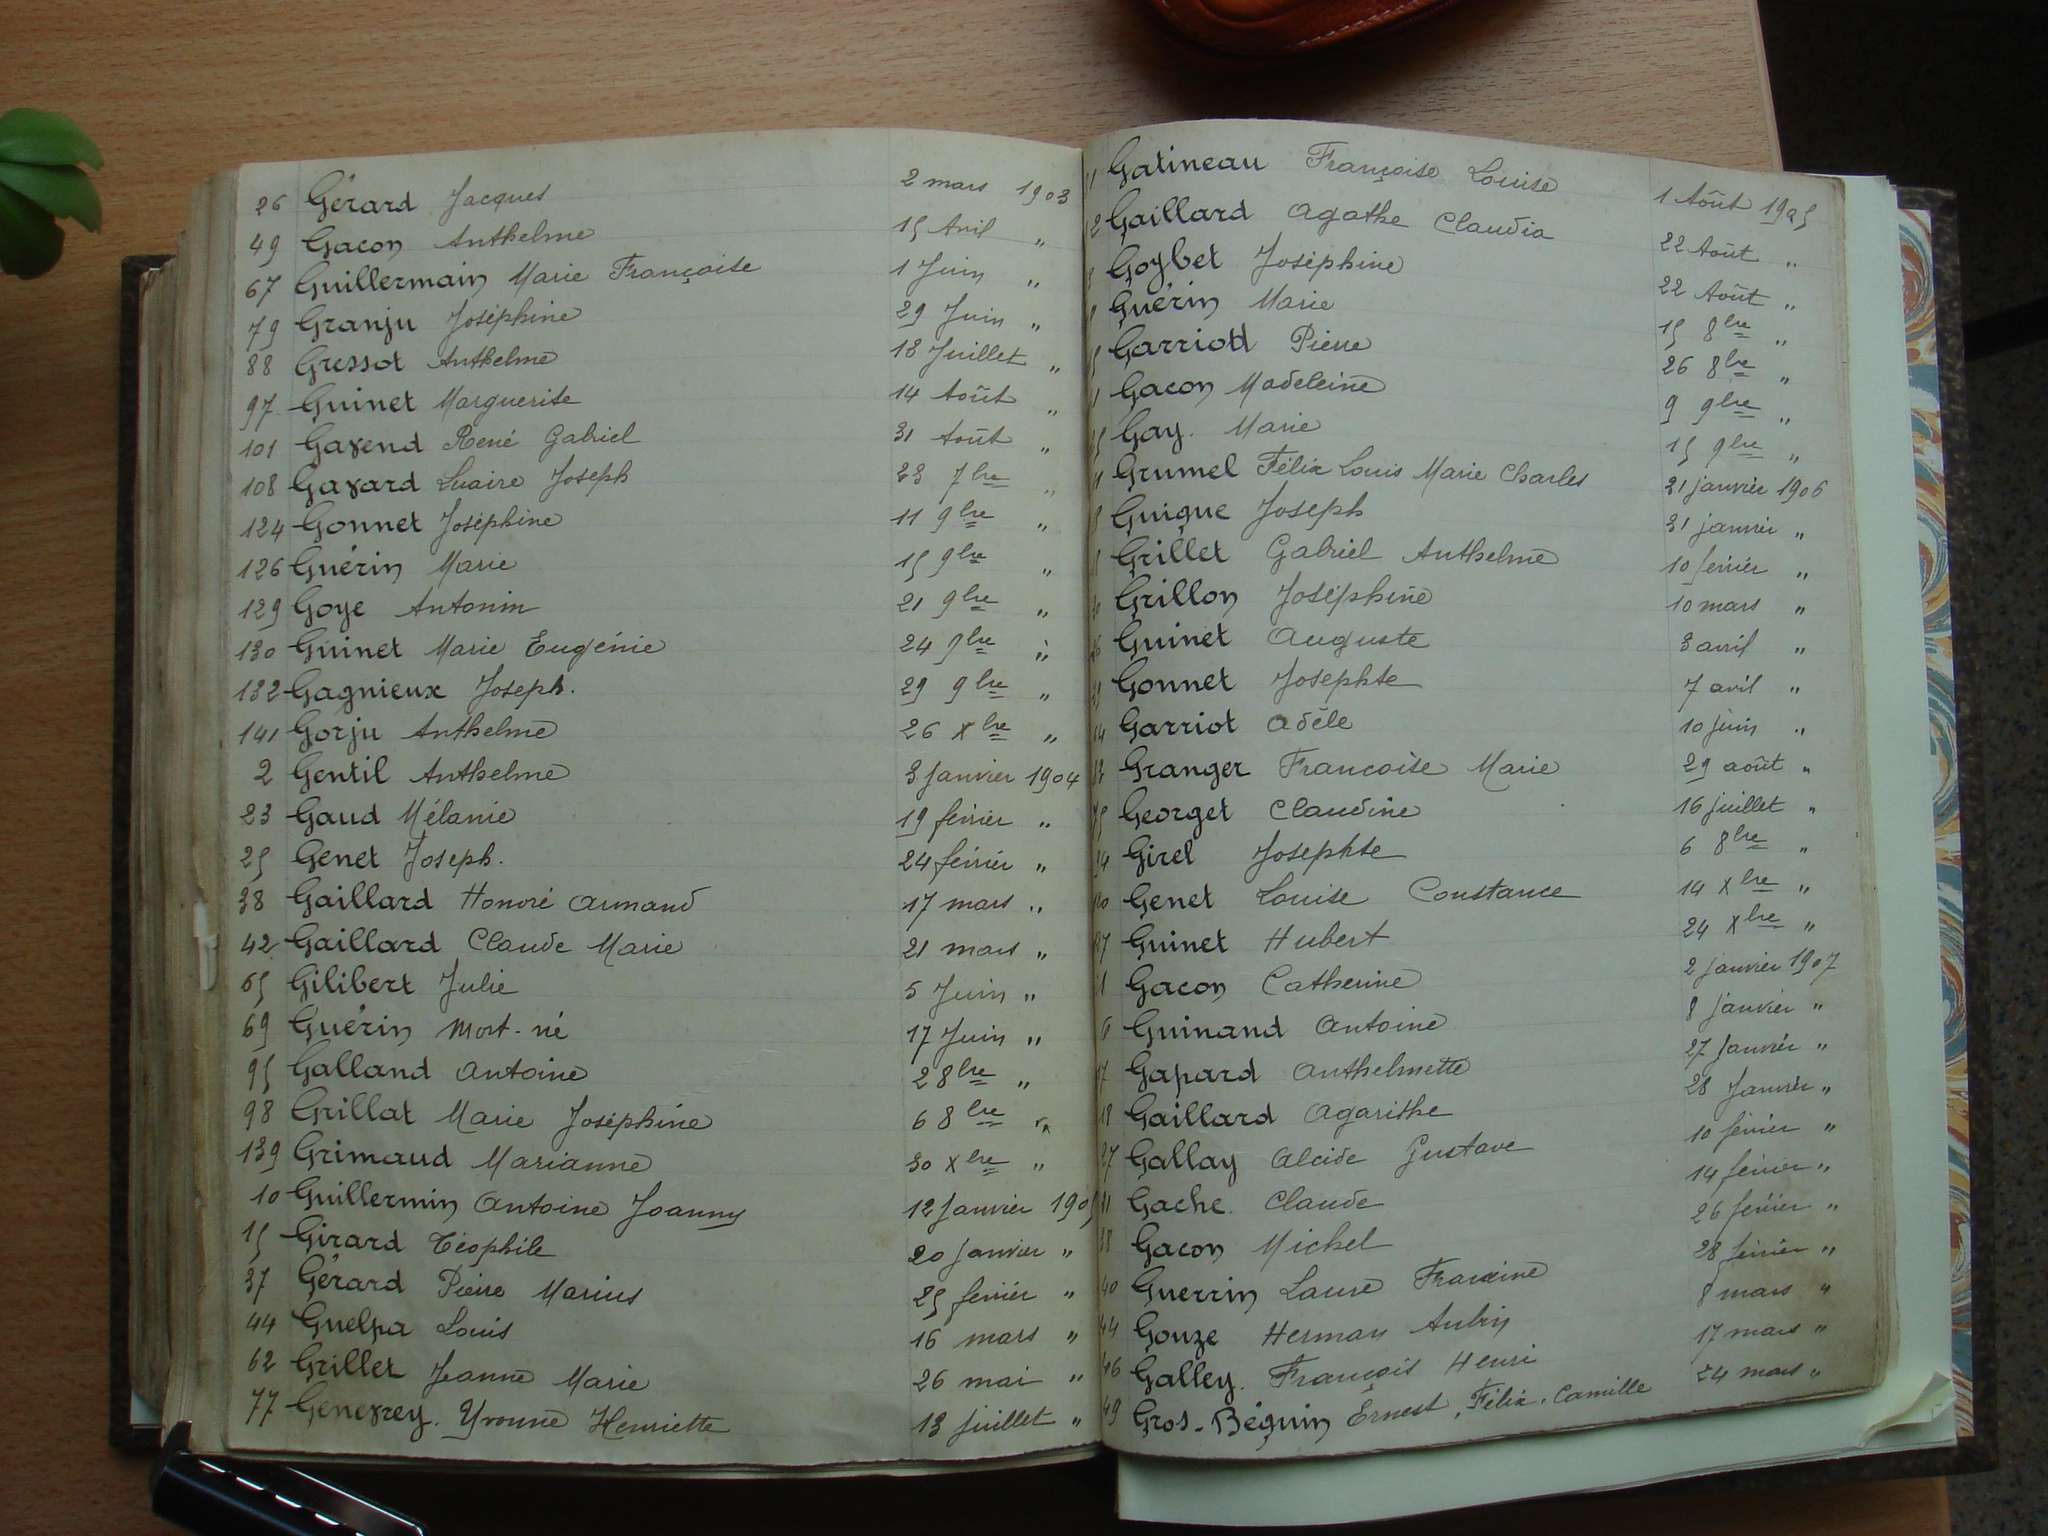 26 Gérard Jacques 2 mars 1903
49 Gacon Anthelme 15 Avril "
67 Guillermain Marie Françoise 1 Juin "
79 Granju Joséphine 29 Juin "
88 Gressot Anthelme 18 Juillet "
97 Guinet Marguerite 14 Août "
101 Gavend René Gabriel 31 Août "
108 Gavard Joseph 23 7bre "
124 Gonnet Joséphine 11 9bre "
126 Guérin Marie 15 9bre "
129 Goye Antonin 21 9bre "
130 Guinet Marie Eugénie 24 9bre "
132 Gagnieux Joseph. 29 9bre "
141 Gorju Anthelme 26 Xbre "
2 Gentil Anthelme 3 Janvier 1904
23 Gaud Mélanie 19 février "
25 Genet Joseph. 24 février "
38 Gaillard Honoré Armand 17 mars "
42 Gaillard Claude Marie 21 mars "
65 Gilibert Julie 5 Juin "
69 Guérin Mort-né 17 Juin "
95 Galland Antoine 2 8bre "
98 Grillat Marie Joséphine 6 8bre "
139 Grimaud Marianne 30 Xbre "
10 Guillermin Antoine Joanny 12 Janvier 1905
15 Girard Téophile 20 Janvier "
37 Gérard Pierre Marius 25 février "
44 Guelpa Louis 16 mars "
62 Grillet Jeanne Marie 26 mai "
77 Genevrey. Yvonne Henriette 13 juillet "
Gatineau Françoise Louise 1 Août 1905
Gaillard Agathe Claudia 22 Août "
Goybet Joséphine 22 Août "
Guérin Marie 15 8bre "
Garriod Pierre 26 8bre "
Gacon Madeleine 9 9bre "
Gay. Marie 15 9bre "
Grumel Félix Louis Marie Charles 21 janvier 1906
Guigue Joseph 31 janvier "
Grillet Gabriel Anthelme 10 février "
Grillon Joséphine 10 mars "
Guinet Auguste 3 avril "
Gonnet Josephte 7 avril "
Garriot Adèle 10 juin "
Granger Francoise Marie 29 août "
Georget Claudine 16 juillet "
Girel Josephte 6 8bre "
Genet Louise Constance 14 Xbre "
Guinet Hubert 24 Xbre "
Gacon Catherine 2 janvier 1907
Guinand Antoine 8 janvier "
Gapard Anthelmette 27 Janvier "
Gaillard Agarithe 28 Janvier "
Gallay Alcide Gustave 10 février "
Gache. Claude 14 février "
Gacon Michel 26 février "
40 Guerrin Laure Francine 28 février "
44 Gouze Herman Aubin 8 mars "
46 Galley. François Henri 17 mars "
49 Gros-Béguin Ernest, Félix, Camille 24 mars "